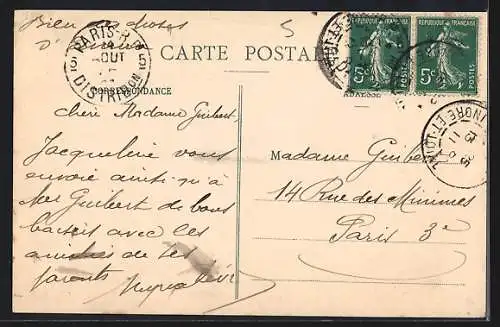 Bien des choses
CARTE POSTALE
CORRESPONDANCE
ADRESSE
PARIS-R.
AOUT
5 5
DISTRIBON
REPUBLIQUE FRANÇAISE
REPUBLIQUE FRANÇAISE
5c
5c
INDRE-ET-LOIRE
chère Madame Guibert
Jacqueline vous
envoie ainsi qu'à
Mr Guibert de bons
baisers avec les
amitiés de ses
parents
Madame Guibert
14 Rue des Minimes
Paris 3e